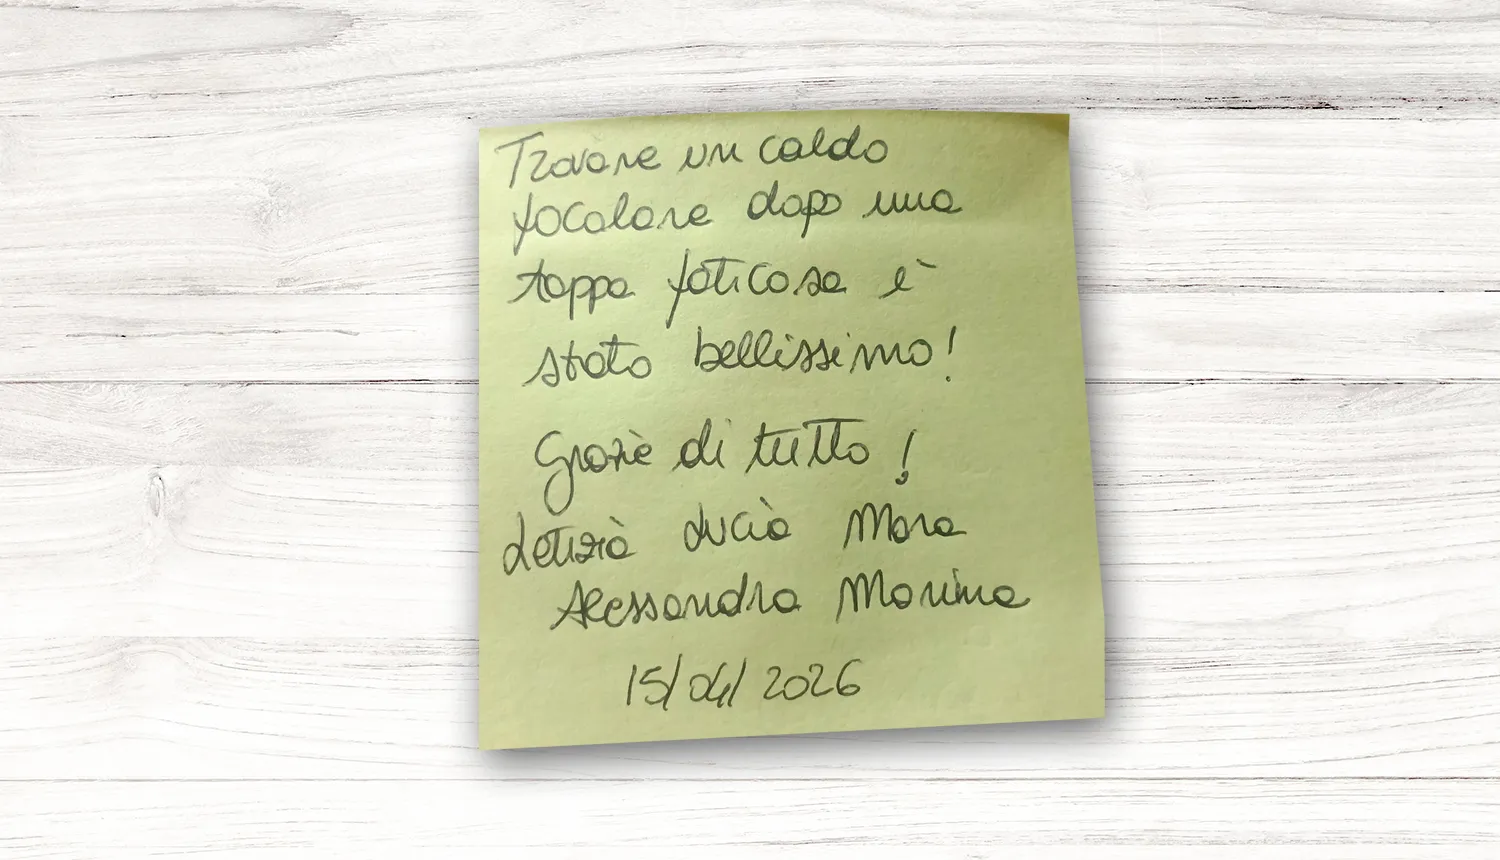 Trovare un caldo
focolare dopo una
tappa faticosa è
stato bellissimo!
Grazie di tutto!
Letizia Lucia Mara
Alessandra Marina
15/04/2026